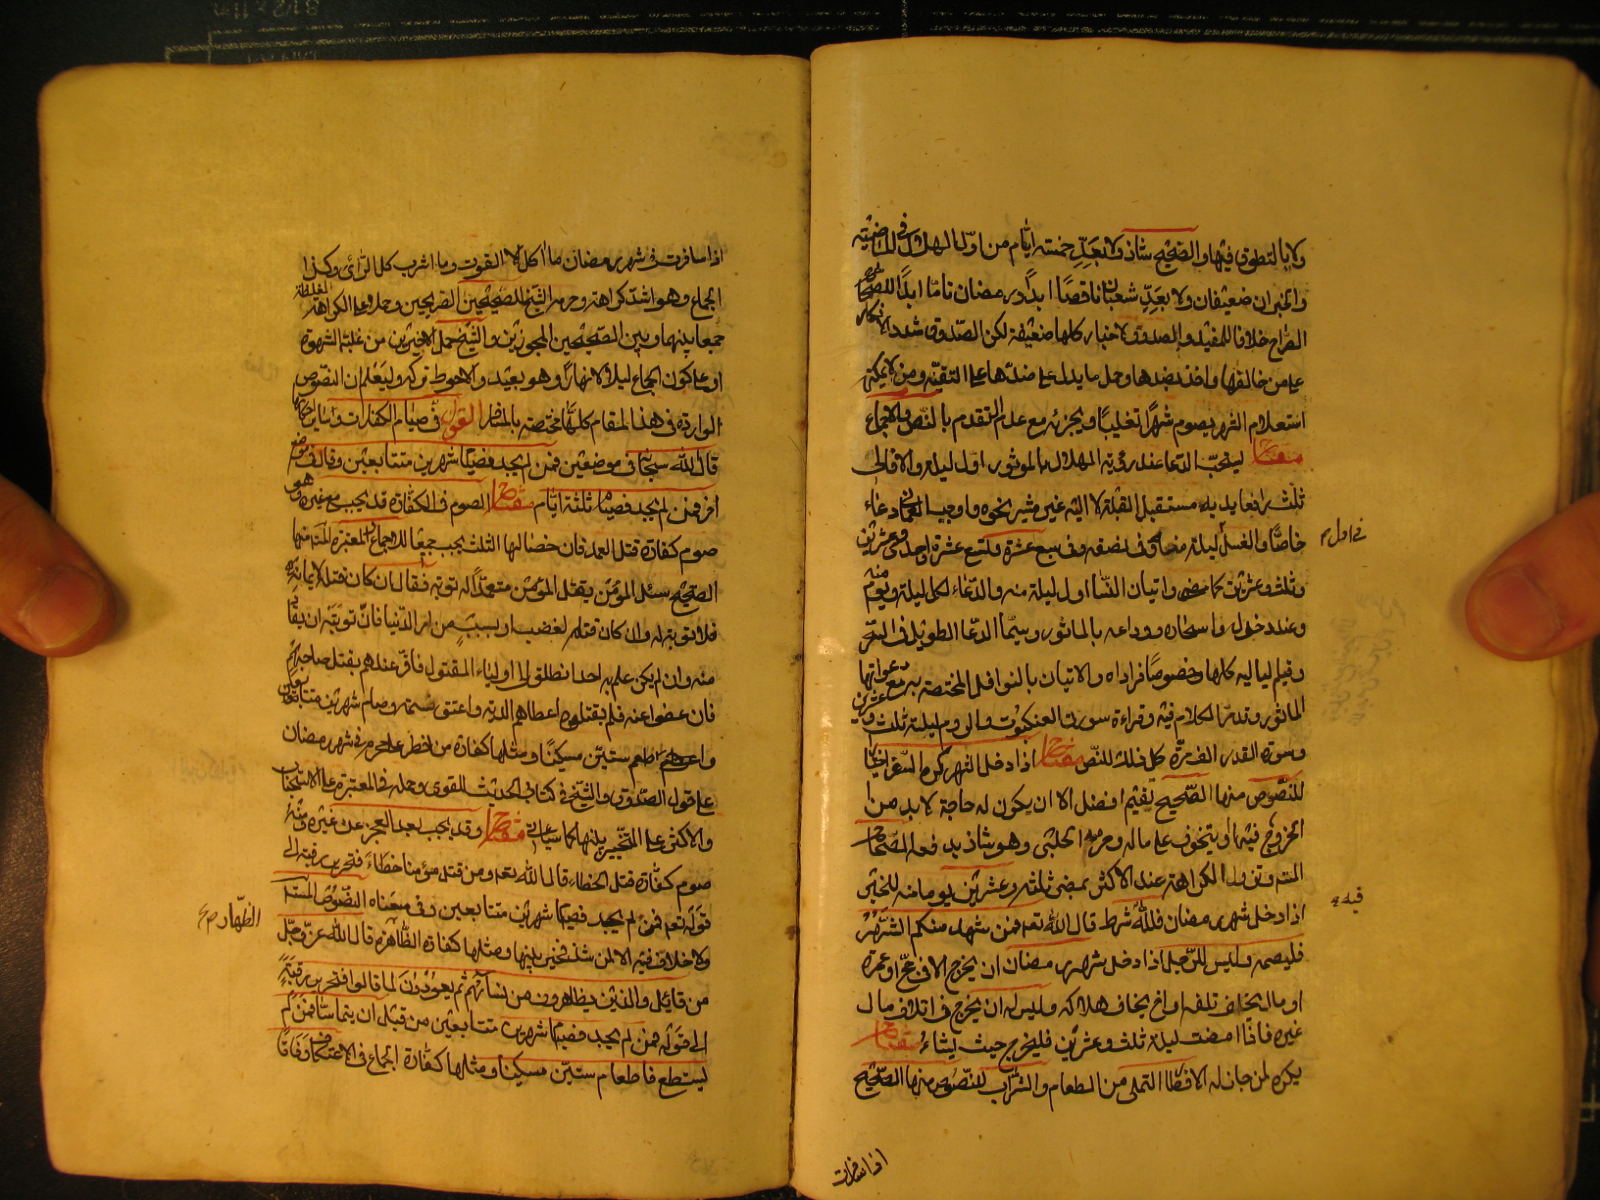 ولا بالتطوق فيها والصحيح شاذ ولا بعدّ خمسة ايّام من اول الهلال في الماضية
والخبران ضعيفان ولا بعدّ شعبان ناقصًا ابدًا ورمضان تامّا ابدًا للصحاح
الصراح خلافا للمفيد والصدوق لاخبار كلها ضعيفة لكن الصدوق شدد الانكار
على من خالفها واخذ بضدها وحمل ما يدل على ضدّها على التقية ومن لا يمكنه
استعلام الشهر يصوم شهرًا تغليبًا ويجزئه مع عدم التقدم بالنص والاجماع
مفتاح يستحبّ الدعا عند رؤية الهلال بالماثور اول ليلة والاقالى
ثلث رافعا يديه مستقبل القبلة لا اليه غير مشير نحوه واوجب العماني دعاء
خاصًّا والغسل ليلة وفي نصفه وفي سبع عشرة وتسع عشرة واحدى وعشرين
في اول م
وثلث وعشرين كما مضى واتيان النسا اول ليلة منه والدعاء لكل ليلة ويوم منه
وعند دخوله واسحاره ووداعه بالماثور وسيّما الدعا الطويل في السحر
وقيام لياليه كلها وخصوصًا فراداه والاتيان بالنوافل المختصة به مع دعواتها
الماثورة وتدبّر الكلام فيه وقراءة سورتي العنكبوت والروم ليلة ثلث وعشرين
وسورة القدر الف مرّة كل ذلك للنص مفتاح اذا دخل الشهر كره السفر اختيارًا
للنصوص منها الصحيح تقيم افضل الا ان يكون له حاجة لا بد من
الخروج فيها او يتخوف على ماله وحرمه الحلبي وهو شاذ يدفعه الصحاح
المستفيضة وتزول الكراهة عند الاكثر بمضي ثلثة وعشرين يوما منه للخبر
اذا دخل شهر رمضان فلله شرط قال الله تعه فمن شهد منكم الشهر
فيه ء
فليصمه وليس للرّجل اذا دخل شهر رمضان ان يخرج الا في حج او عمرة
او مال يخاف تلفه او اخ يخاف هلاكه وليس له ان يخرج في اتلاف مال
غيره فاذا مضت ليلة ثلث وعشرين فليخرج حيث يشاء مفتاح
يكره لمن جاز له الافطار التملي من الطعام والشراب للنصوص منها الصحيح
اذا سافرت
اذا سافرت في شهر رمضان ما اكل الا القوت وما اشرب كل الرّيّ وكذا
الجماع وهو اشدّ كراهة وحرمه الشيخ للصحيحين الصريحين وحملوها على الكراهة المغلظة
جمعا بينهما وبين الصحيحين المجوزين والشيخ حمل الاخيرين من غلبة الشهوة
او على كون الجماع ليلًا لا نهارًا وهو بعيد والاحوط تركه وليعلم ان النصوص
الواردة في هذا المقام كلها مختصة بالمسافر القول في صيام الكفارات
قال الله سبحانه في موضعين فمن لم يجد فصيام شهرين متتابعين وقال في موضع
اخر فمن لم يجد فصيام ثلثة ايّام مفتاح الصوم في الكفارة قد يجب مع غيره وهو
صوم كفارة قتل العمد فان خصالها الثلث يجب جميعًا للاجماع والمعتبرة المستفيضة منها
الصحيح سئل المؤمن يقتل المؤمن متعمّدًا له توبة فقال ان كان قتله لايمانه
فلا توبة له وان كان قتله لغضب او بسبب من امر الدنيا فانّ توبته ان يقاد
منه وان لم يكن علم به احد انطلق الى اولياء المقتول فاقرّ عندهم بقتل صاحبهم
فان عفوا عنه فلم يقتلوه اعطاهم الدية واعتق نسمة وصام شهرين متتابعين
واطعم ستين مسكينًا ومثلها كفارة من افطر على محرم في شهر رمضان
على قول الصدوق والشيخ في كتابي الحديث القوي وحمله في المعتبر على الاستحباب
والاكثر على التخيير بينها كما سياتي مفتاح وقد يجب بعد العجز عن غيره ومنه
صوم كفّارة قتل الخطاء قال الله تعه ومن قتل مؤمنا خطاءً فتحرير رقبة الى
قوله تعه فمن لم يجد فصيام شهرين متتابعين وفي معناه النصوص المستفيضة
ولا خلاف فيه الا لمن شذ فخير بينها ومثلها كفارة الظاهرة قال الله عز وجلّ
الظهار م ع
من قائل والذين يظاهرون من نسائهم ثم يعودون لما قالوا فتحرير رقبة
الى قوله فمن لم يجد فصيام شهرين متتابعين من قبل ان يتماسّا فمن لم
يستطع فاطعام ستين مسكينا ومثلها كفارة الجماع في الاعتكاف وفاقًا